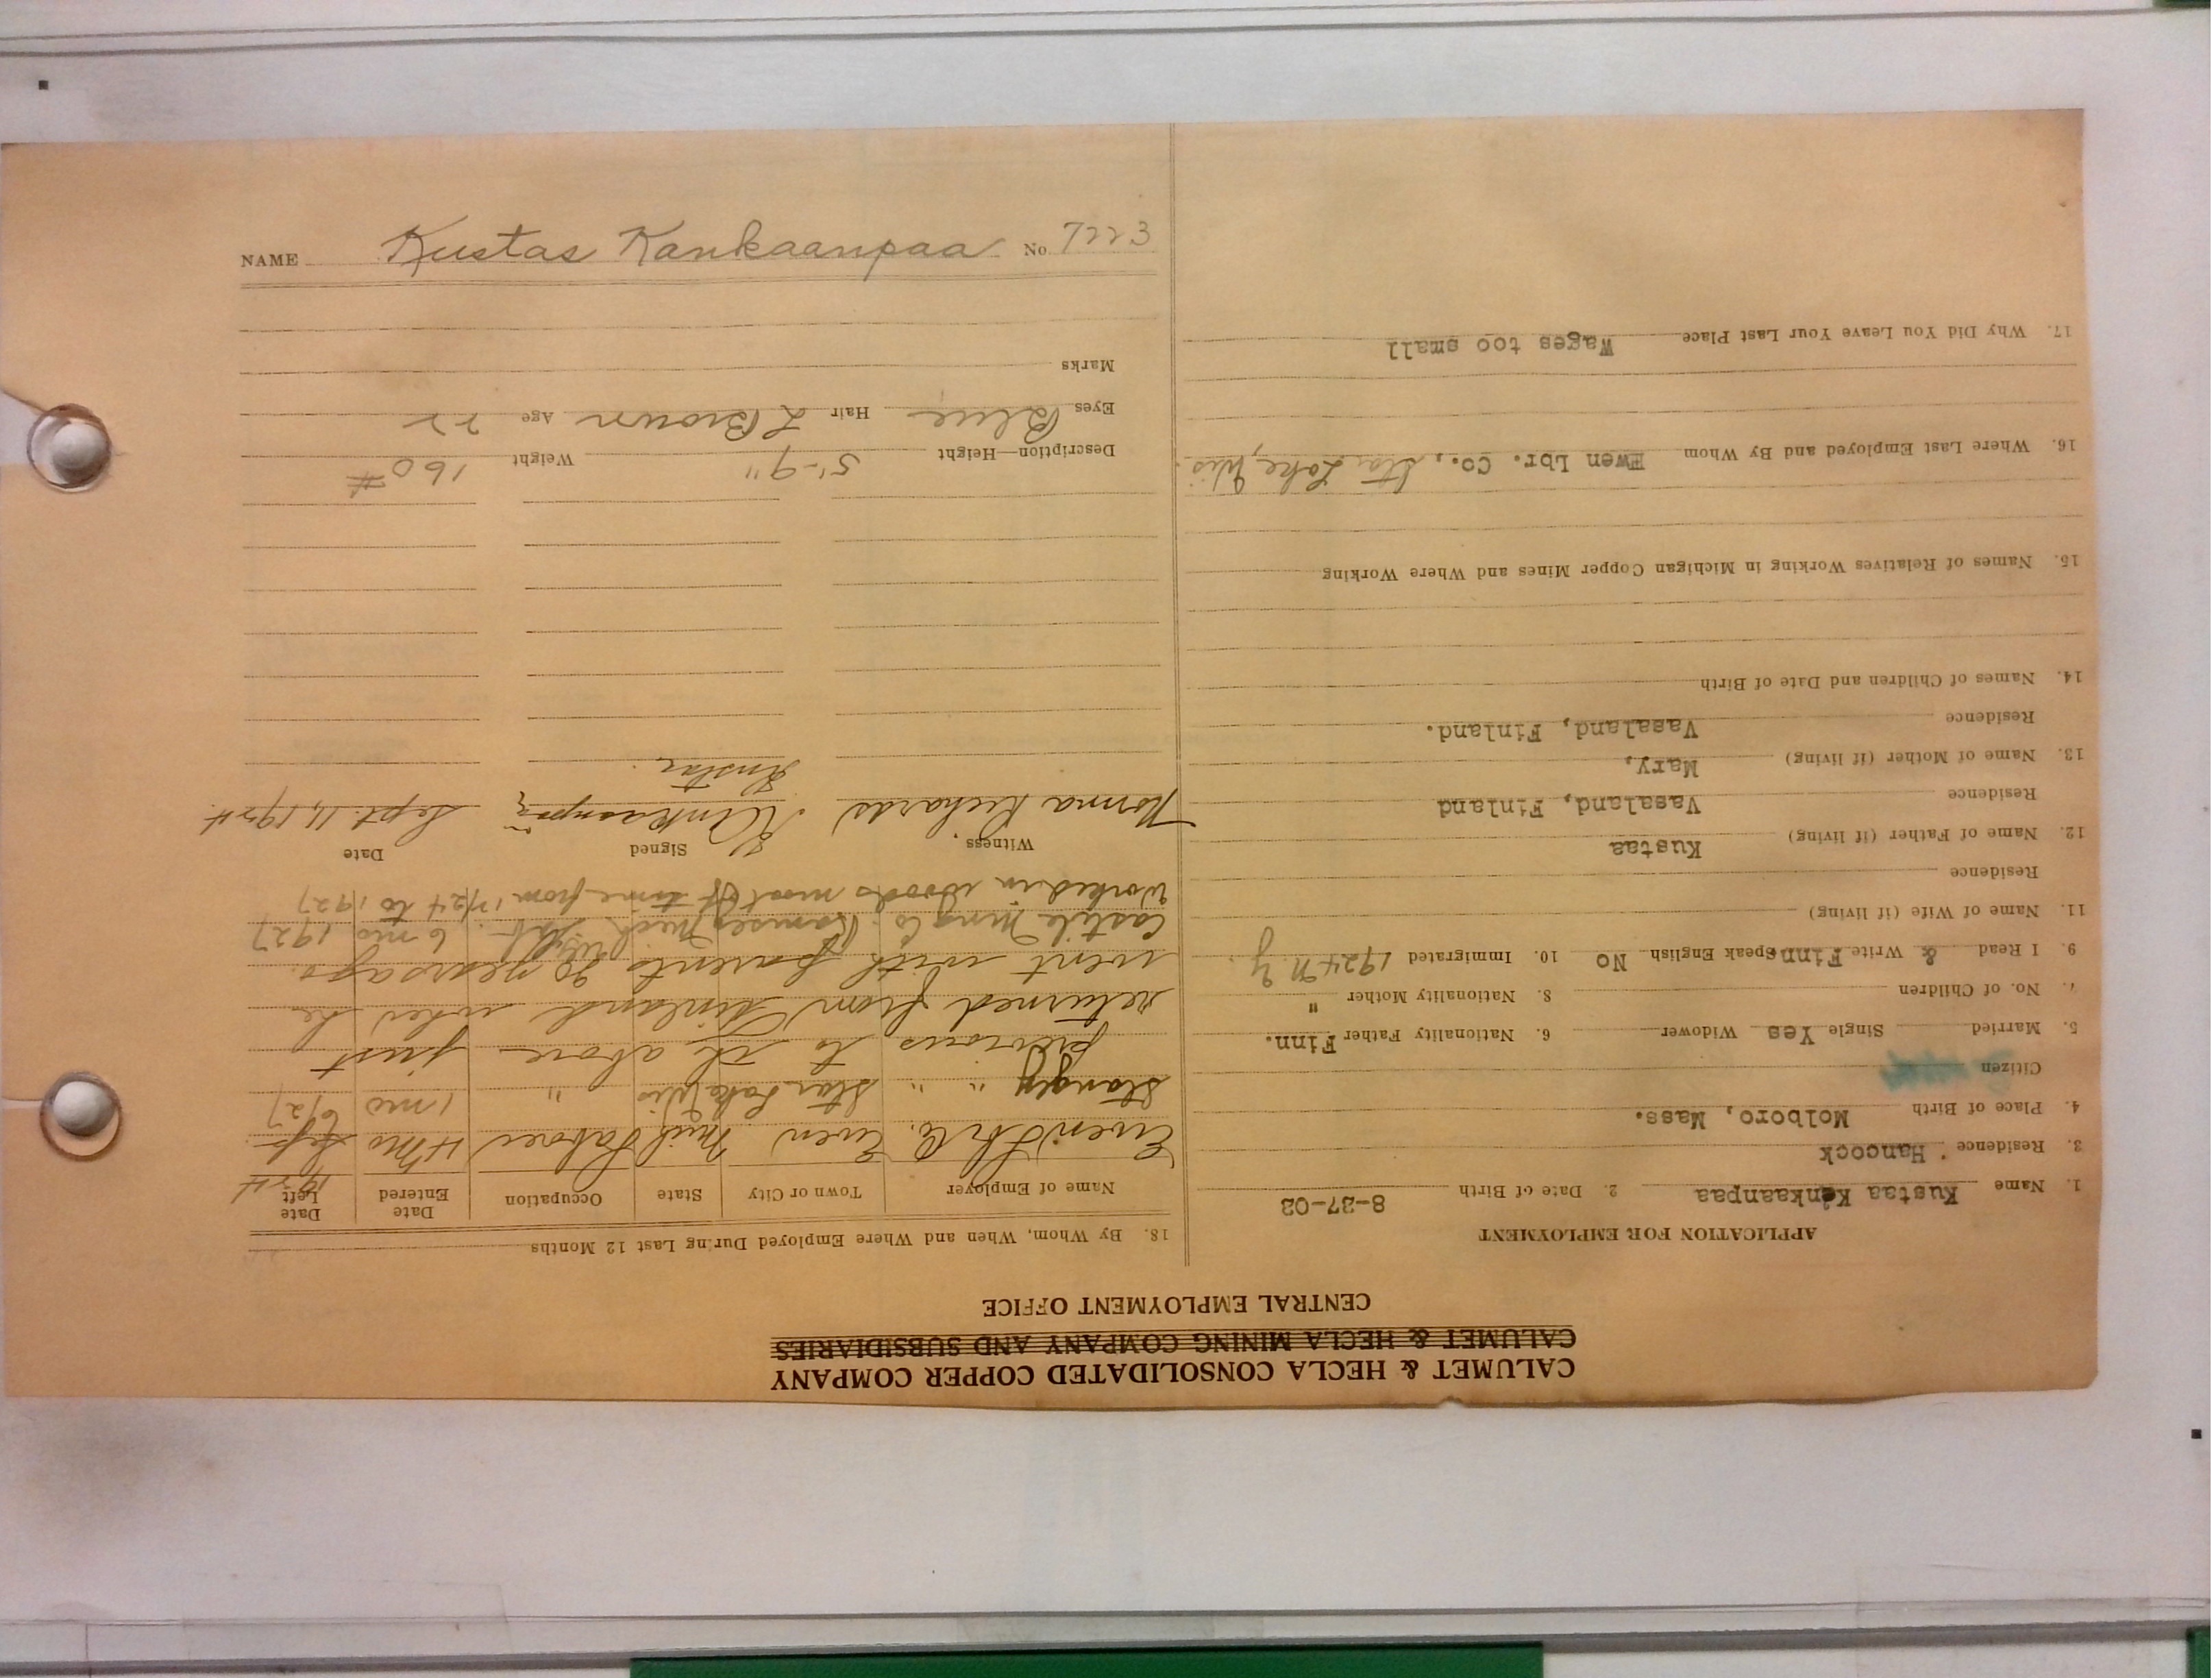 CALUMET & HECLA CONSOLIDATED COPPER COMPANY
CALUMET & HECLA MINING COMPANY AND SUBSIDIARIES
CENTRAL EMPLOYMENT OFFICE
APPLICATION FOR EMPLOYMENT
1. Name Kustaa Kankaanpaa 2. Date of Birth 8-27-02
3. Residence Hancock
4. Place of Birth Molboro, Mass.
Citizen
5. Married Single Yes Widower 6. Nationality Father Finn.
7. No. of Children 8. Nationality Mother "
9. I Read & Write Finn Speak English No 10. Immigrated 1924 N.Y.
11. Name of Wife (if living)
Residence
12. Name of Father (if living) Kustaa
Residence Vasaland, Finland
13. Name of Mother (if living) Mary,
Residence Vasaland, Finland.
14. Names of Children and Date of Birth
15. Names of Relatives Working in Michigan Copper Mines and Where Working
16. Where Last Employed and By Whom Ewen Lbr. Co., Star Lake, Wis.
17. Why Did You Leave Your Last Place Wages too small
18. By Whom, When and Where Employed During Last 12 Months
Name of Employer Town or City State Occupation Date Entered Date Left
1924
Ewen Lbr Co. Ewen Mich Laborer 4 mo Sept.
" " Star Lake Wis " 1 mo 6/27
previous to the above just
returned from Finland where he
went with parents 20 years ago.
Castile Mng Co. Ramsey Mich 6 mo 1927
Worked in woods most of time from 1924 to 1927
Witness Signed Date
Norma Richards Kankaanpaa Sept. 11, 1924
Kustaa
Description—Height 5'-9" Weight 160#
Eyes Blue Hair L Brown Age 22
Marks
NAME Kustas Kankaanpaa No. 7223